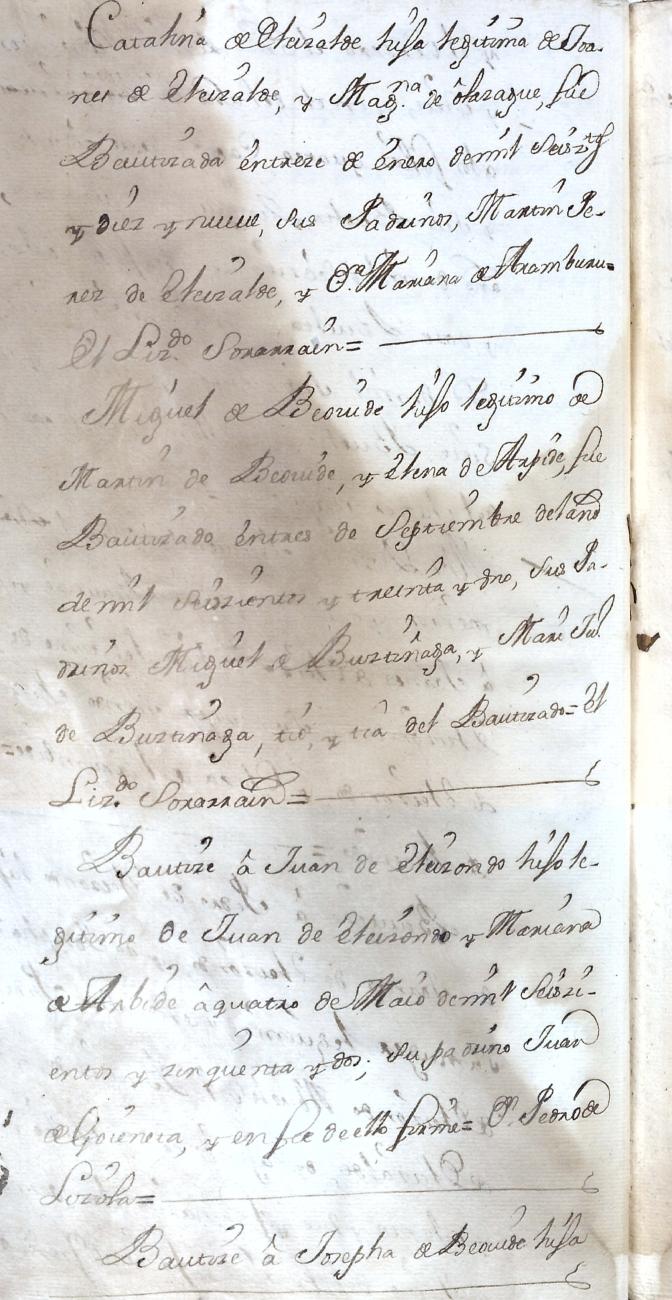 Catalina de Eleizalde hija legitima de Joa-
nes de Eleizalde, y Mag.na de olazague, fue
Bautizada entreze de enero demil Seiszts
y diez y nueve, sus Padrinos, Martin Pe-
rez de Eleizalde, y D.a Mariana de Aramburu=
El Liz.do Sorarrain=
Miguel de Beovide hijo legitimo de
Martin de Beovide, y Elena de Arbide, fue
Bautizado entres de Septiembre delaño
demil seiszientos y treinta y dos, sus Pa-
drinos Miguel de Burtinaga, y Mari
de Burtinaga, tio, y tia del Bautizado= El
Liz.do Sorarrain=
Bautize â Juan de Eleizondo hijo le-
gitimo de Juan de Eleizondo y Mariana
de Arbide âquatro de Maio demil Seiszi-
entos y zinquenta y dos; su padrino Juan
de Goieneta, y en fee deello firmè= D.n Pedro de
Loiola=
Bautize â Josepha de Beovide hija